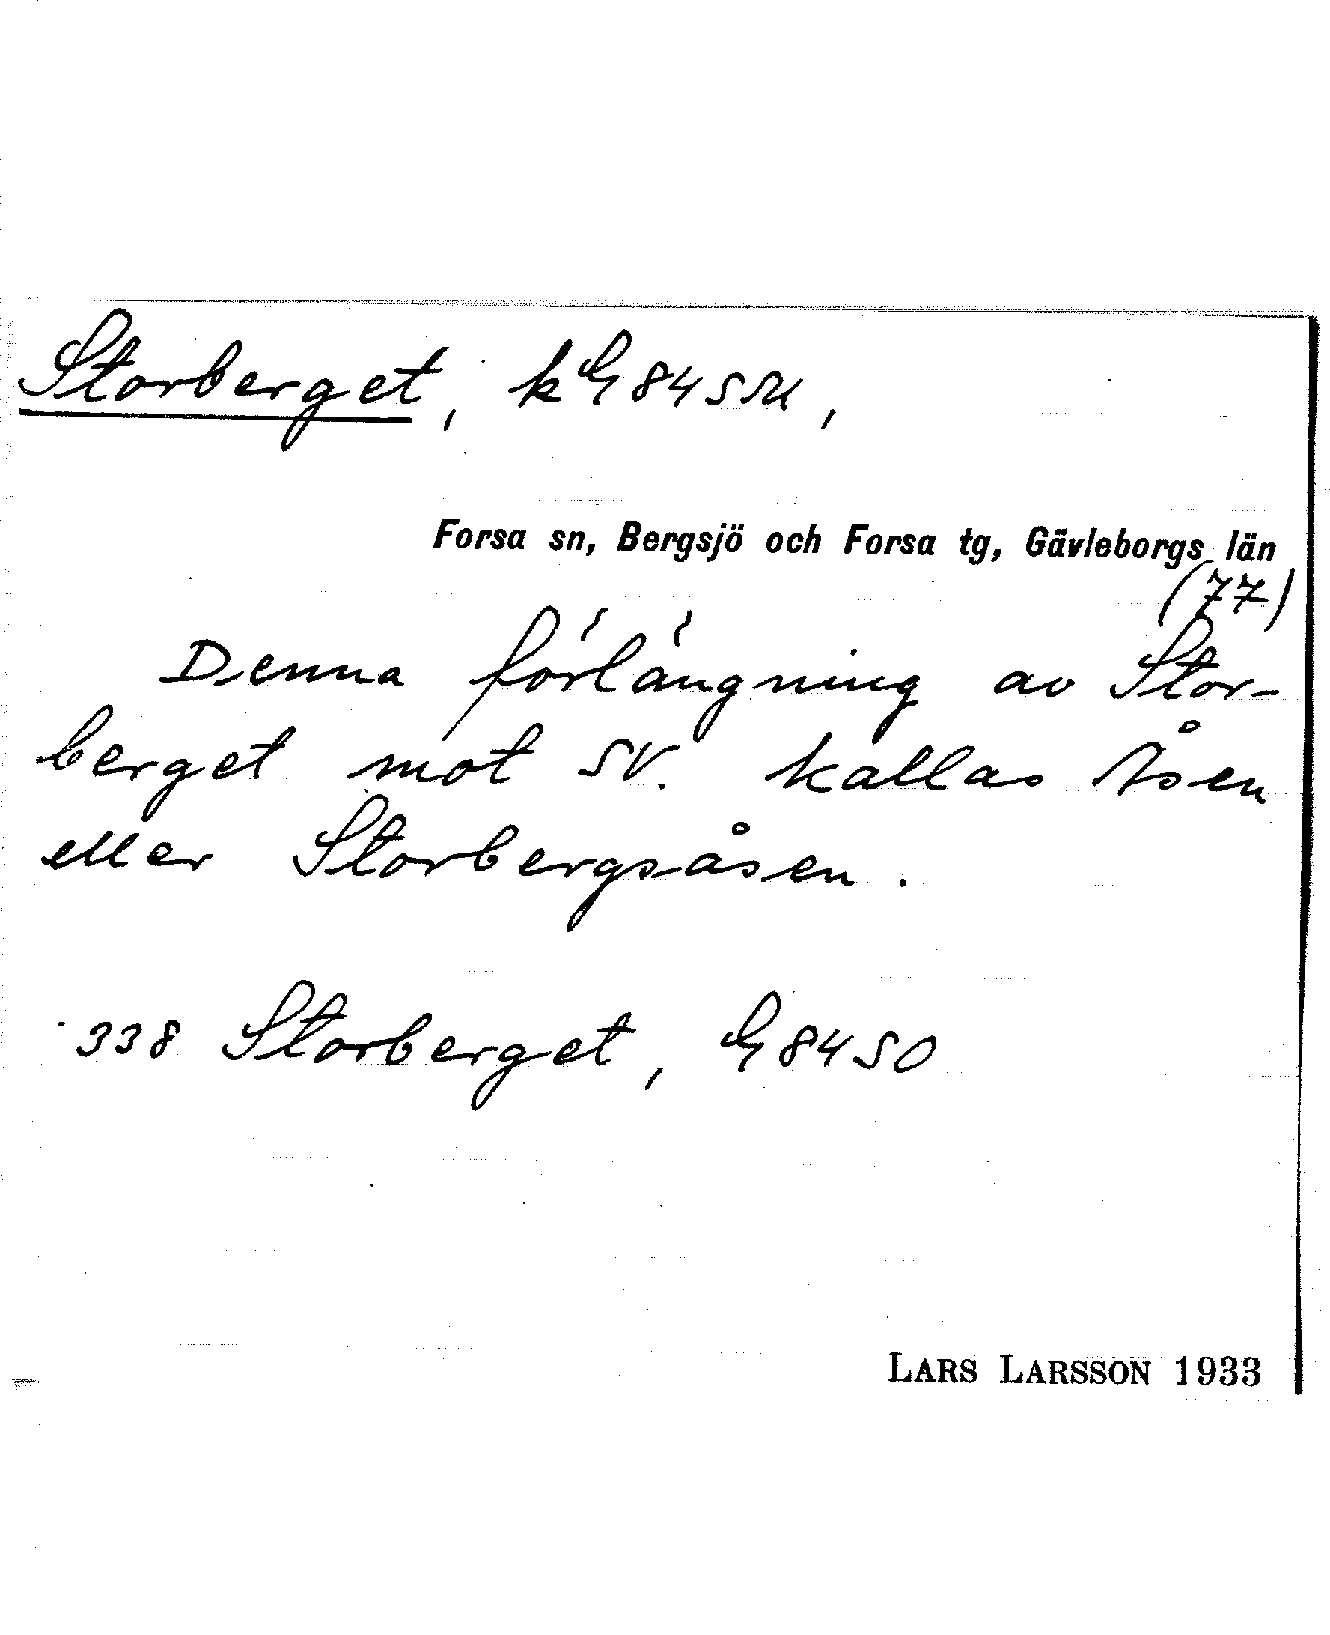 Storberget, k G 84 SM,
Forsa sn, Bergsjö och Forsa tg, Gävleborgs län
(77)
Denna förlängning av Stor-
berget mot SV. kallas Åsen
eller Storbergsåsen.
338 Storberget, G 84 SO
LARS LARSSON 1933